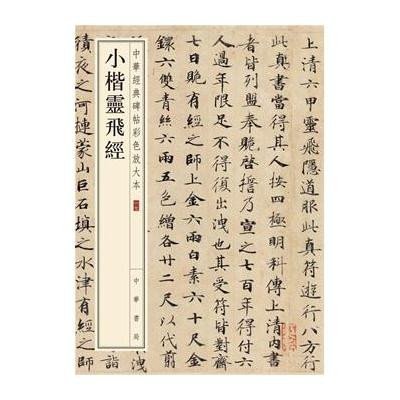 上清六甲靈飛隱道服此真符遊行八方行
此真書當得其人按四極明科傳上清內書
者皆列盟奉跪啓乃宣之七百年得付六
人過年限足不得復出洩也其受符皆對齋
七日賝有經之師上金六兩白素六十尺金
鐶六雙青絲六兩五色繒各廿二尺以代翦
中華經典碑帖彩色放大本
小楷靈飛經
中華書局
積夜之河蒙山巨石填之水津有經之師